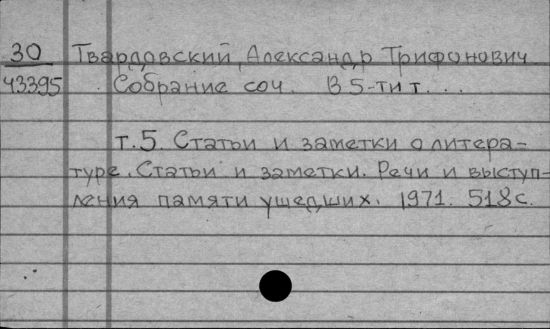 30 Твардовский, Александр Трифонович
43395 Собрание соч. В 5-ти т. . .
т.5. Статьи и заметки о литера-
туре. Статьи и заметки. Речи и выступ-
ления памяти ушедших. 1971. 518 с.